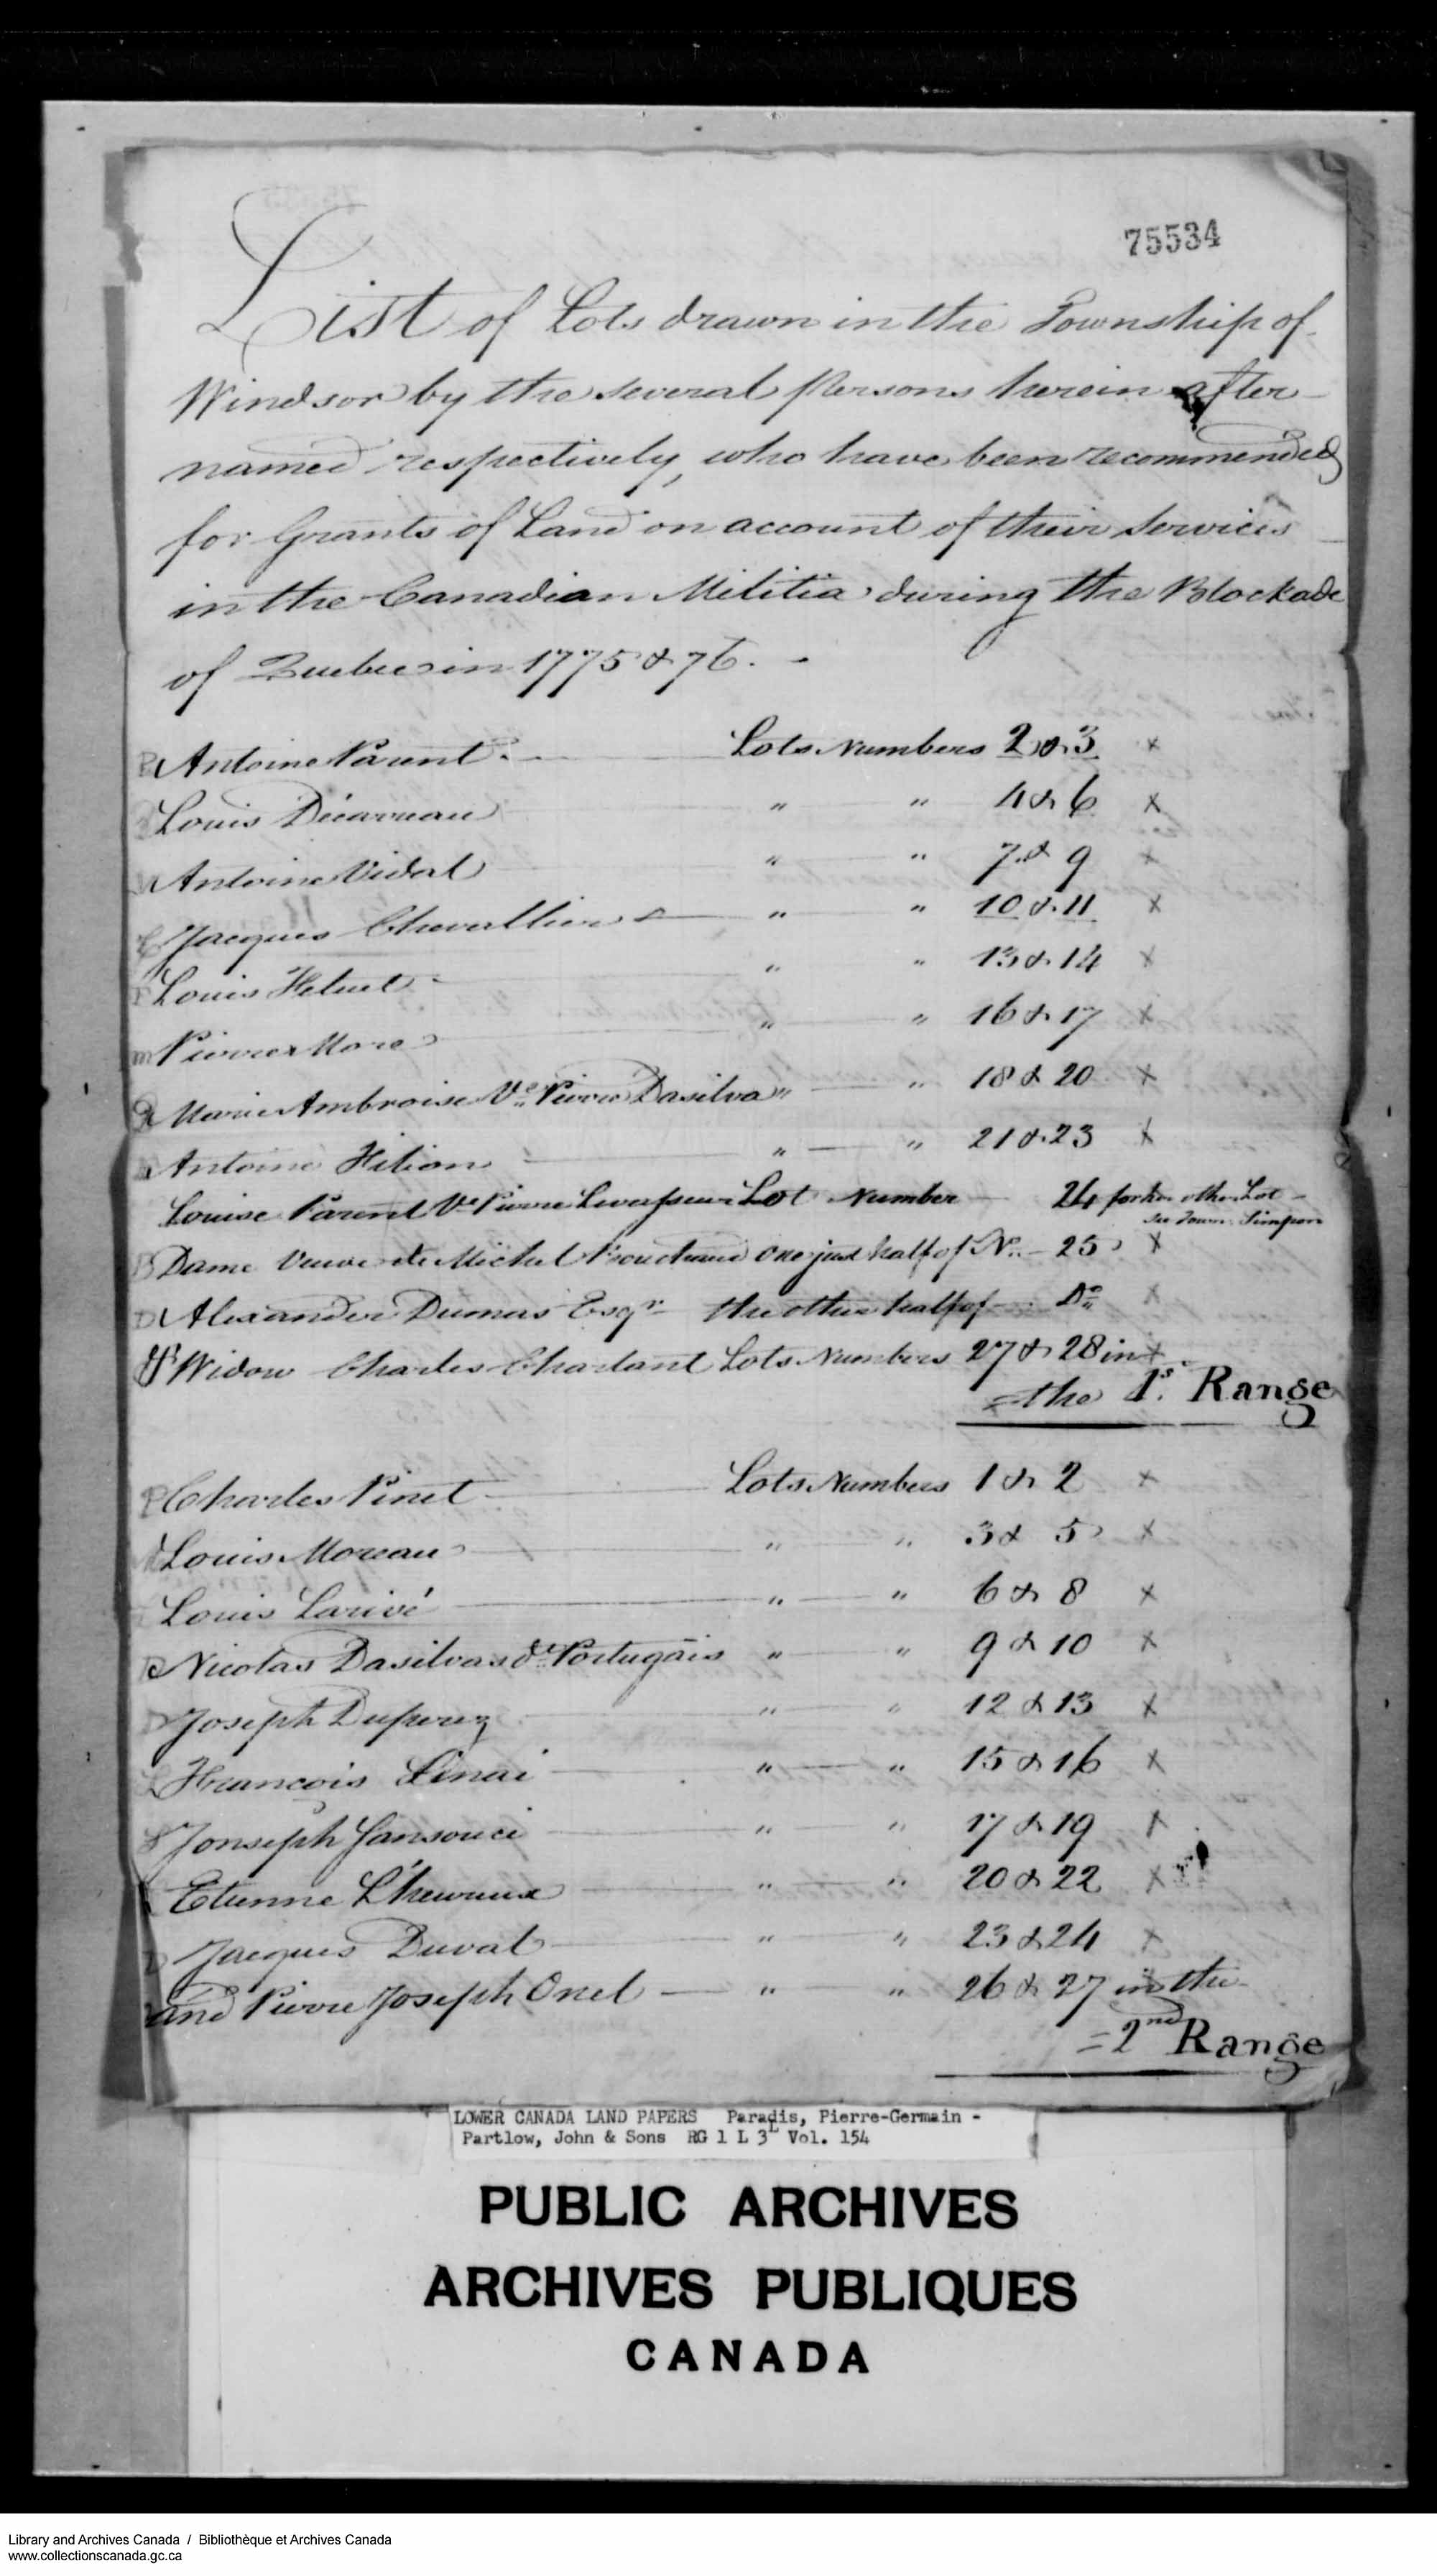 75534
List of Lots drawn in the Township of
Windsor by the several Persons herein after
named respectively, who have been recommended
for Grants of Land on account of their Services
in the Canadian Militia during the Blockade
of Quebec in 1775 & 76. -
P Antoine Parent. Lots Numbers 2 & 3 x
Louis Décarreau " " 4 & 6 x
V Antoine Vidal " " 7 & 9 x
C Jacques Chevallier " " 10 & 11 x
Louis Helnet " " 13 & 14 x
m Pierre More " " 16 & 17 x
Marie Ambroise Ve Pierre Dasilva " " 18 & 20 x
Antoine Hilion " " 21 & 23 x
Louise Parent Ve Pierre Levasseur Lot Number 24 for her other Lot
see Town. Simpson
B Dame Veuve de Michel one just half of No. 25 x
D Alexander Dumas Esqr the other half of Do x
Widow Charles Charlant Lots Numbers 27 & 28 in x
= the 1st. Range
P Charles Pinet Lots Numbers 1 & 2 x
Louis Moreau " " 3 & 5 x
Louis Larivé " " 6 & 8 x
Nicolas Dasilva dt Portugais " " 9 & 10 x
D Joseph Duperez " " 12 & 13 x
François Sinai " " 15 & 16 x
Jonseph Sansouci " " 17 & 19 x
Etienne L'heureux " " 20 & 22 x
D Jacques Duval " " 23 & 24 x
and Pierre Joseph Onel " " 26 & 27 in the
= 2nd Range
LOWER CANADA LAND PAPERS Paradis, Pierre-Germain -
Partlow, John & Sons RG 1 L 3L Vol. 154
PUBLIC ARCHIVES
ARCHIVES PUBLIQUES
CANADA
Library and Archives Canada / Bibliothèque et Archives Canada
www.collectionscanada.gc.ca